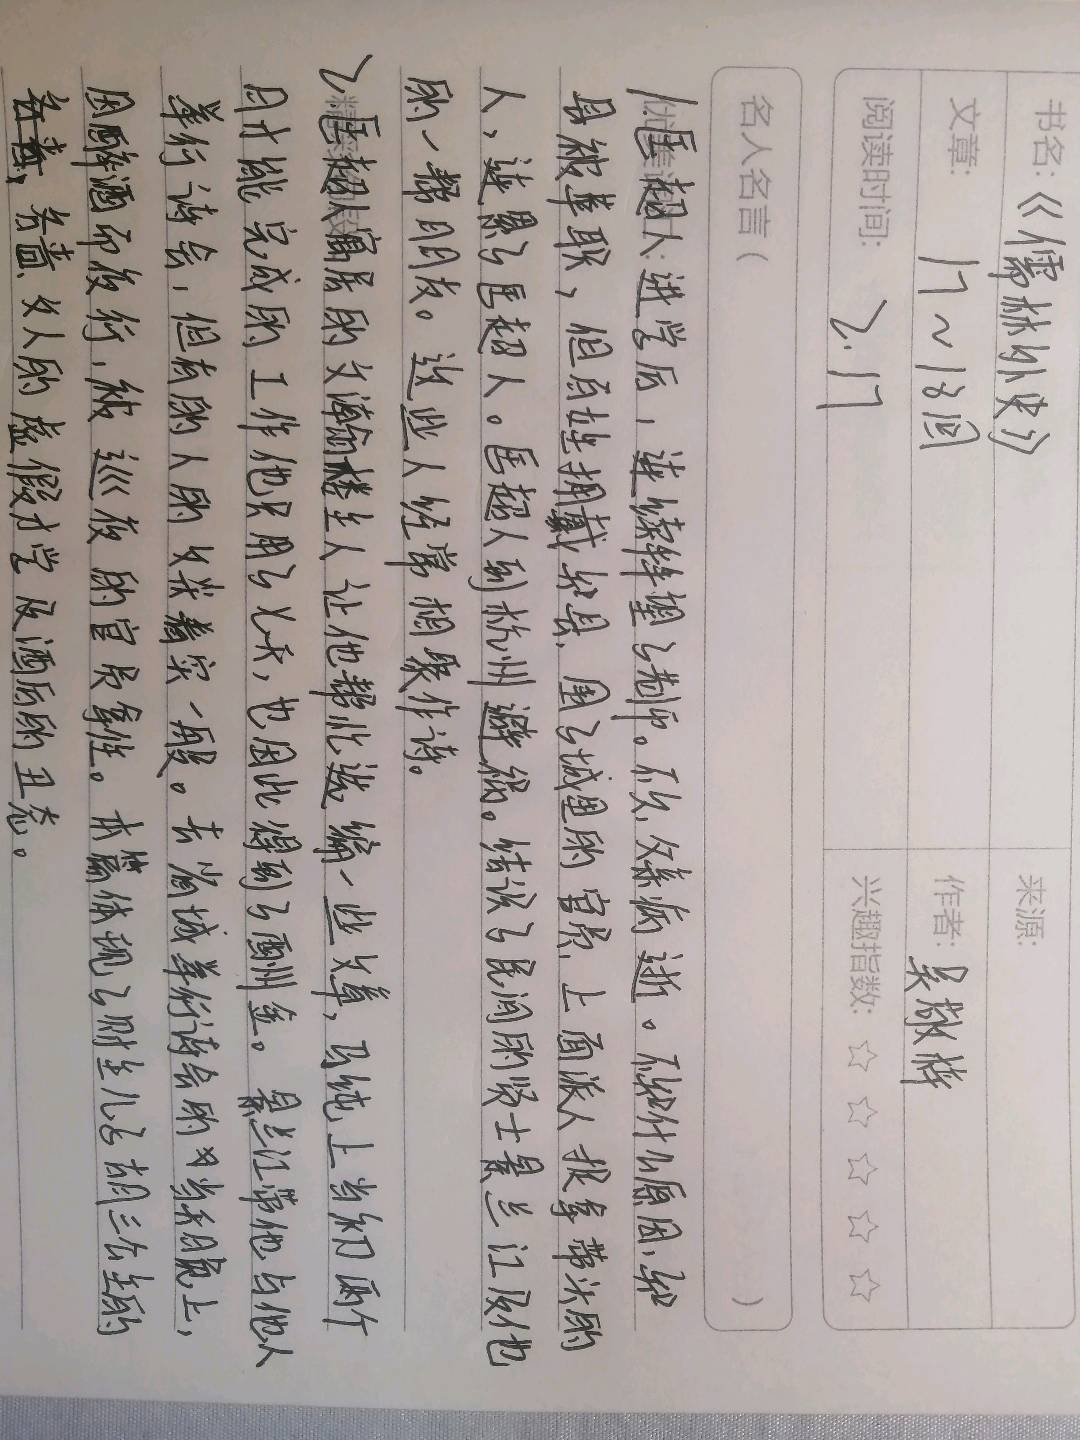 书名:《儒林外史》 来源:
文章: 17~18回 作者: 吴敬梓
阅读时间: 2.17 兴趣指数: ☆ ☆ ☆ ☆ ☆
名人名言( )
1 匡超人进学后,连续拜望了老师。不久,父亲病逝。不知什么原因,知
县被革职,但百姓拥戴知县,围了城里的官员,上面派人捉拿带头的
人,连累了匡超人。匡超人到杭州避祸。结识了民间的贤士景兰江及他
的一帮朋友。这些人经常相聚作诗。
2 匡超人寓居的文瀚楼主人让他帮忙选编一些文章,马纯上当初两个
月才能完成的工作他只用了七天,也因此得到了酬金。景兰江带他与他人
举行诗会,但有的人的文采着实一般。去省城举行诗会的 当天晚上,
因醉酒而夜行,被巡夜的官员拿住。本篇体现了财主儿子胡三公主的
吝啬,文人的虚假才学及酒后的丑态。